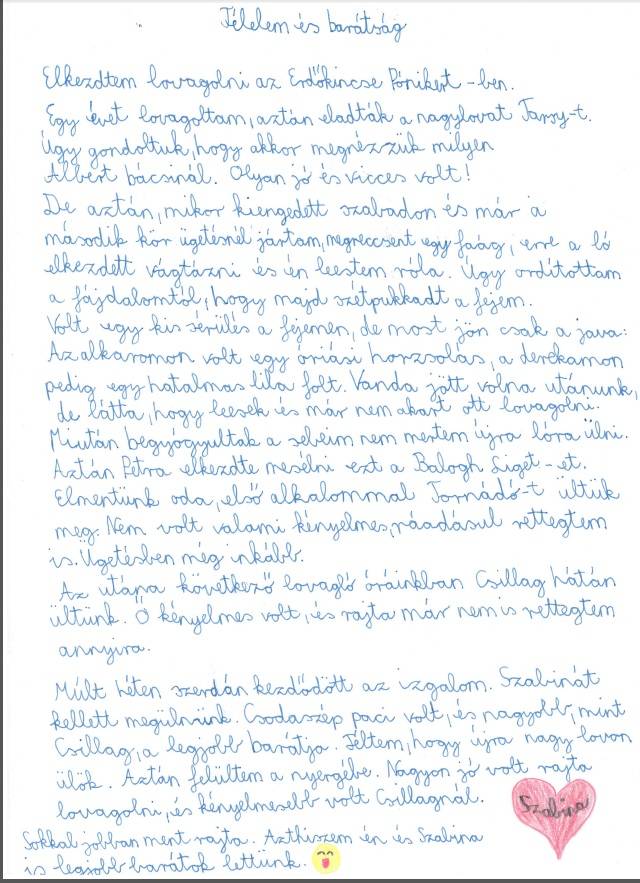 Félelem és barátság
Elkezdtem lovagolni az Erdőkincse Pónikert-ben.
Egy évet lovagoltam, aztán eladták a nagylovat Tarsy-t.
Úgy gondoltuk, hogy akkor megnézzük milyen
Albert bácsinál. Olyan jó és vicces volt!
De aztán, mikor kiengedett szabadon és már a
második kör ügetésnél jártam, megreccsent egy faág, erre a ló
elkezdett vágtázni és én leestem róla. Úgy ordítottam
a fájdalomtól, hogy majd szétpukkadt a fejem.
Volt egy kis sérülés a fejemen, de most jön csak a java:
Az alkaromon volt egy óriási horzsolás, a derekamon
pedig egy hatalmas lila folt. Vanda jött volna utánunk,
de látta, hogy leesek és már nem akart ott lovagolni.
Miután begyógyultak a sebeim nem mertem újra lóra ülni.
Aztán Petra elkezdte mesélni ezt a Balogh Liget-et.
Elmentünk oda, első alkalommal Tornádó-t ültük
meg. Nem volt valami kényelmes, ráadásul rettegtem
is. Ügetésben még inkább.
Az utána következő lovagló óráinkban Csillag hátán
ültünk. Ő kényelmes volt, és rajta már nem is rettegtem
annyira.
Múlt héten szerdán kezdődött az izgalom. Szabinát
kellett megülnünk. Csodaszép paci volt, és nagyobb, mint
Csillag, a legjobb barátja. Féltem, hogy újra nagy lovon
ülök. Aztán felültem a nyergébe. Nagyon jó volt rajta
lovagolni, és kényelmesebb volt Csillagnál.
Szabina
Sokkal jobban ment rajta. Azthiszem én és Szabina
is legjobb barátok lettünk.